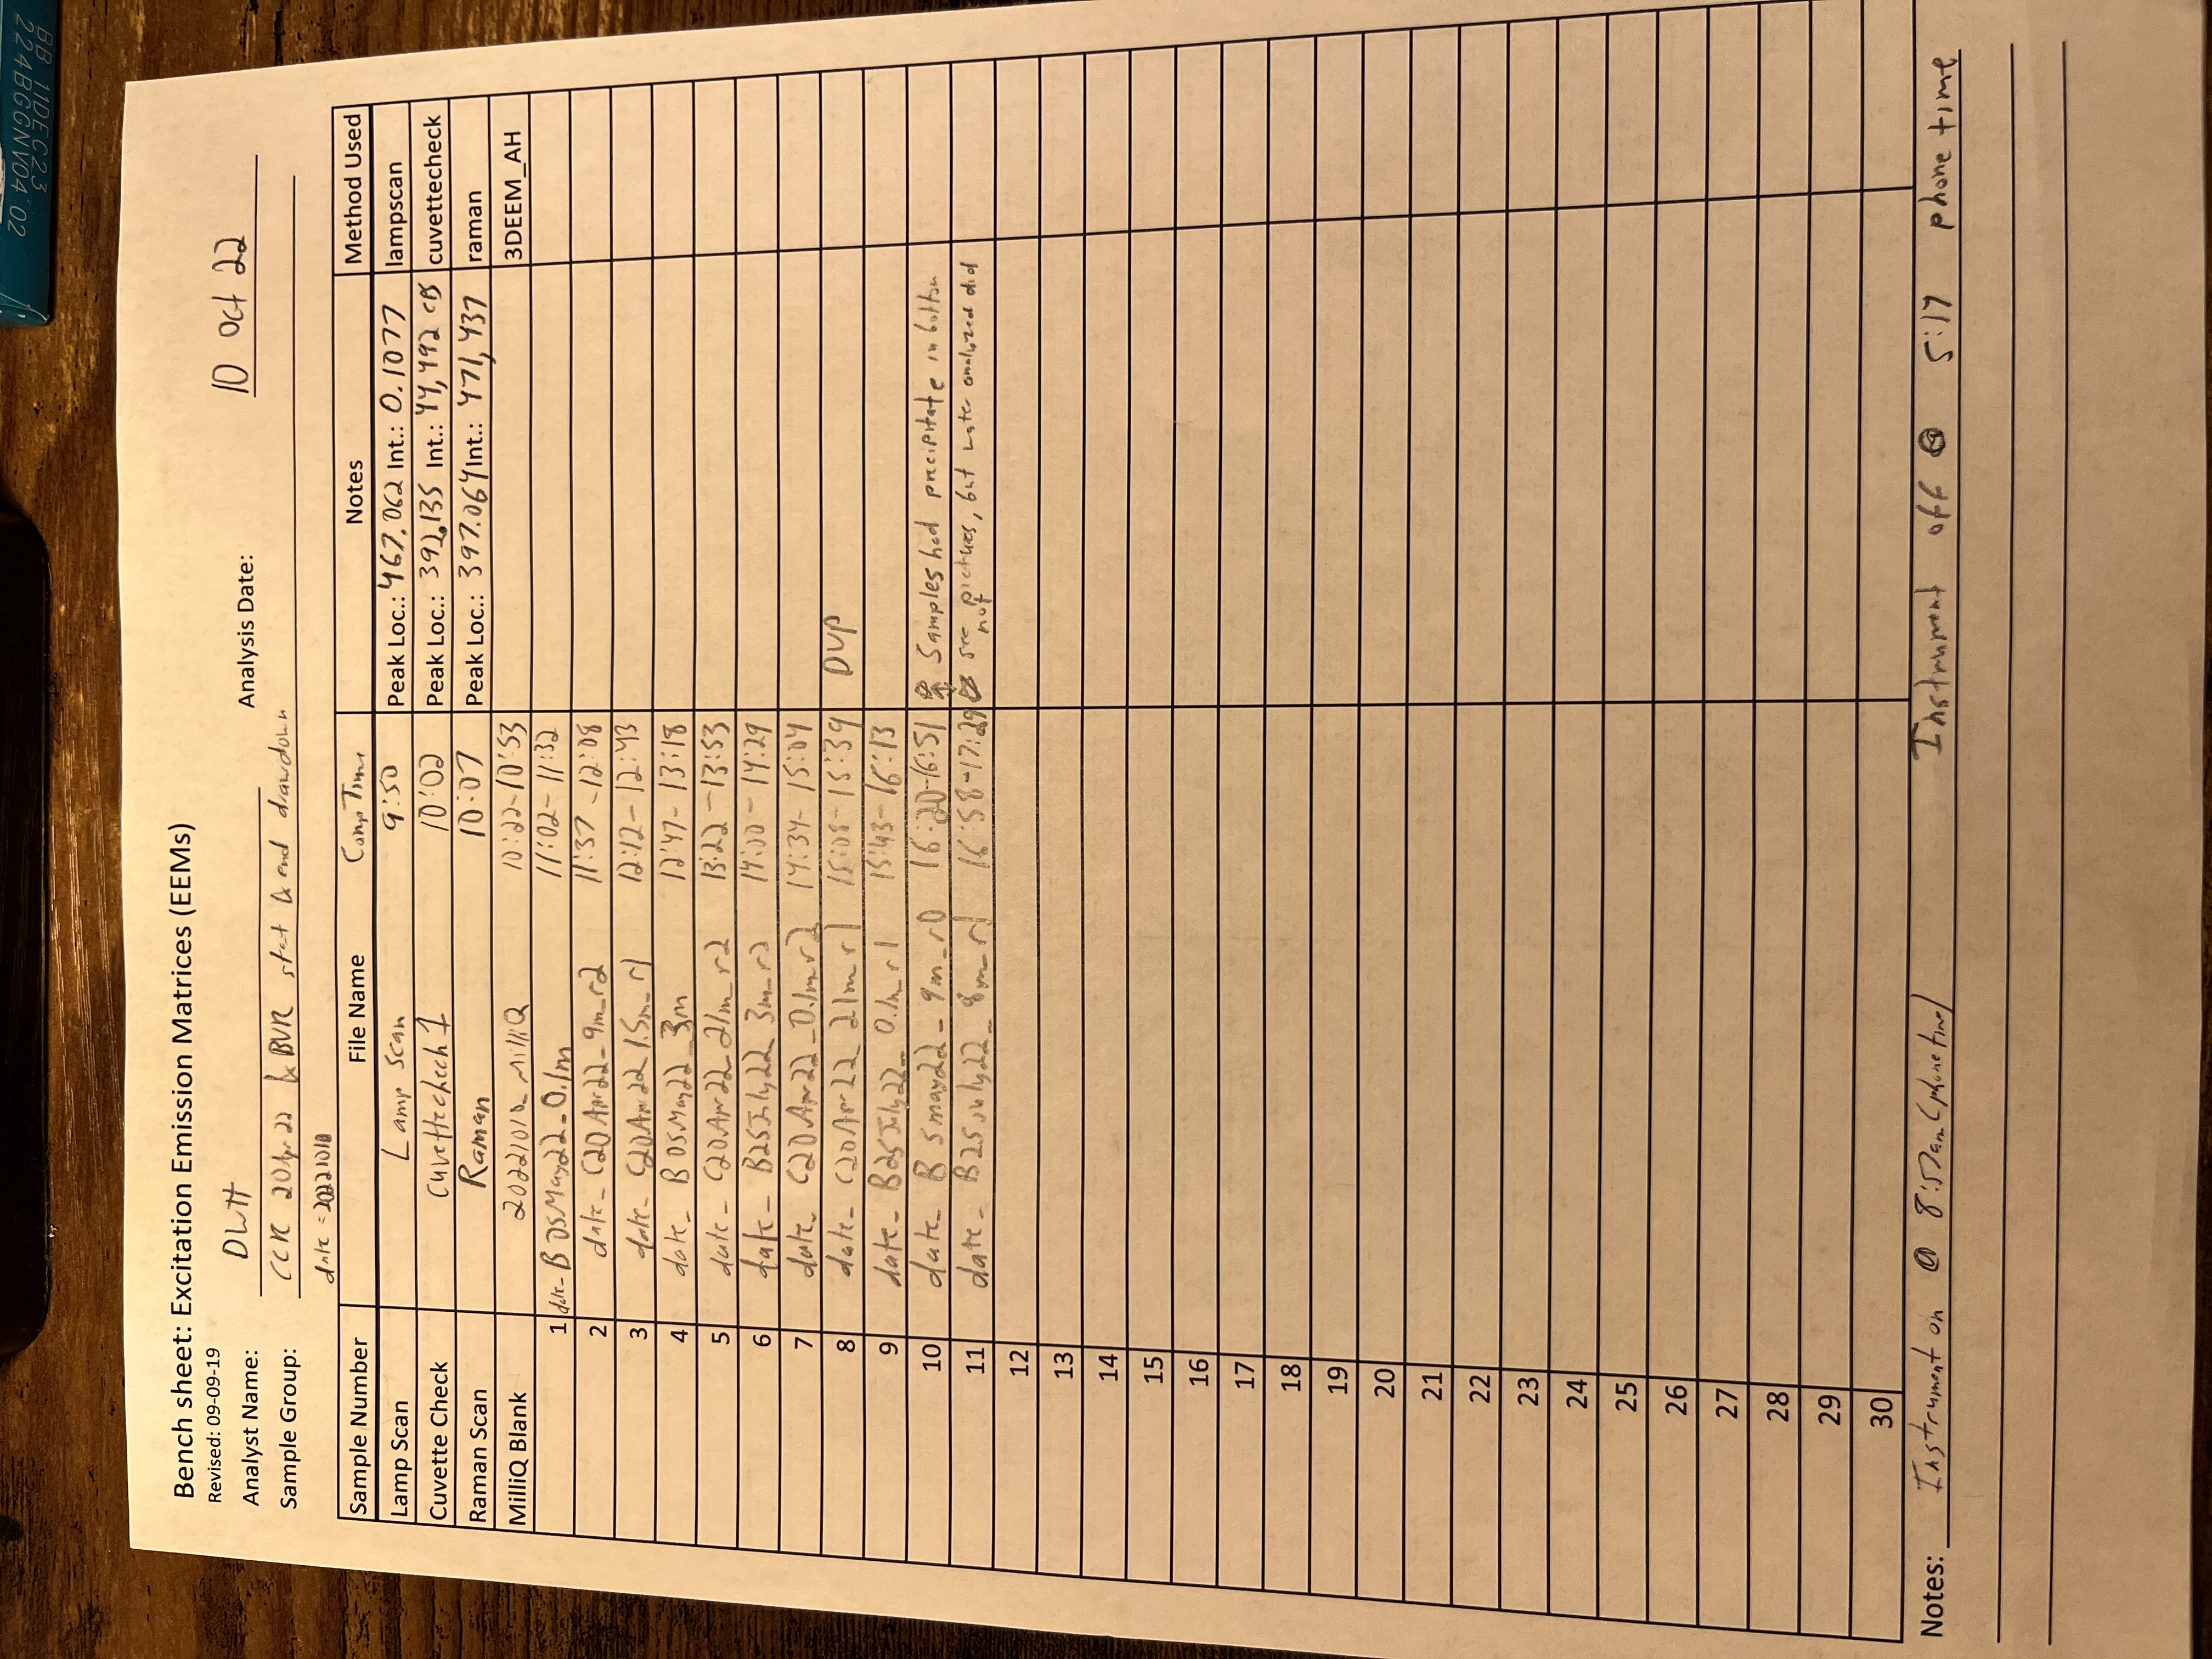 BB 11DEC23
224BGGNV04 02
Bench sheet: Excitation Emission Matrices (EEMs)
Revised: 09-09-19
Analyst Name: DWH Analysis Date: 10 Oct 22
Sample Group: CCR 20Apr22 & BVR start & end drawdown
date = 20221010
Sample Number File Name Comp Time Notes Method Used
Lamp Scan Lamp scan 9:50 Peak Loc.: 467.062 Int.: 0.1077 lampscan
Cuvette Check Cuvettecheck1 10:02 Peak Loc.: 392.135 Int.: 44,492 cps cuvettecheck
Raman Scan Raman 10:07 Peak Loc.: 397.064 Int.: 471,437 raman
MilliQ Blank 20221010_MilliQ 10:22-10:53 3DEEM_AH
1 date_ B 05May22_0.1m 11:02-11:32
2 date_ C20Apr22_9m_r2 11:37-12:08
3 date_ C20Apr22 1.5m_r1 12:12-12:43
4 date_ B 05May22_3m 12:47-13:18
5 date_ C20Apr22_21m_r2 13:22-13:53
6 date_ B25July22_3m_r2 14:00-14:29
7 date_ C20Apr22_0.1m_r2 14:34-15:04
8 date_ C20Apr22_21m_r1 15:08-15:39 DUP
9 date_ B25July22_0.1m_r1 15:43-16:13
10 date_ B 5may22_9m_r0 16:20-16:51 Samples had precipitate in bottom
11 date_ B25july22_8m_r1 16:58-17:29 see pictures, but water analyzed did
not
12
13
14
15
16
17
18
19
20
21
22
23
24
25
26
27
28
29
30
Notes: Instrument on @ 8:57am (phone time) Instrument off @ 5:17 phone time